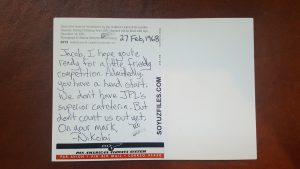 27 Feb 1968
Jacob, I hope you're
ready for a little friendly
competition. Admittedly,
you have a head start.
We don't have JPL's
superior cafeteria. But
don't count us out yet.
On your mark,
~Nikolai
SOYUZFILES.COM
PAN AMERICAN WORLD AIRWAYS SYSTEM
PAR AVION • VIA AIR MAIL • CORREO AEREO